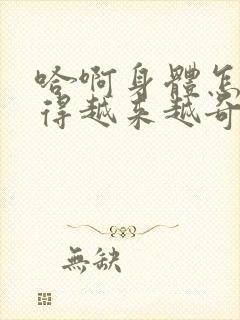 哈啊身體怎
得越来越奇
無缺